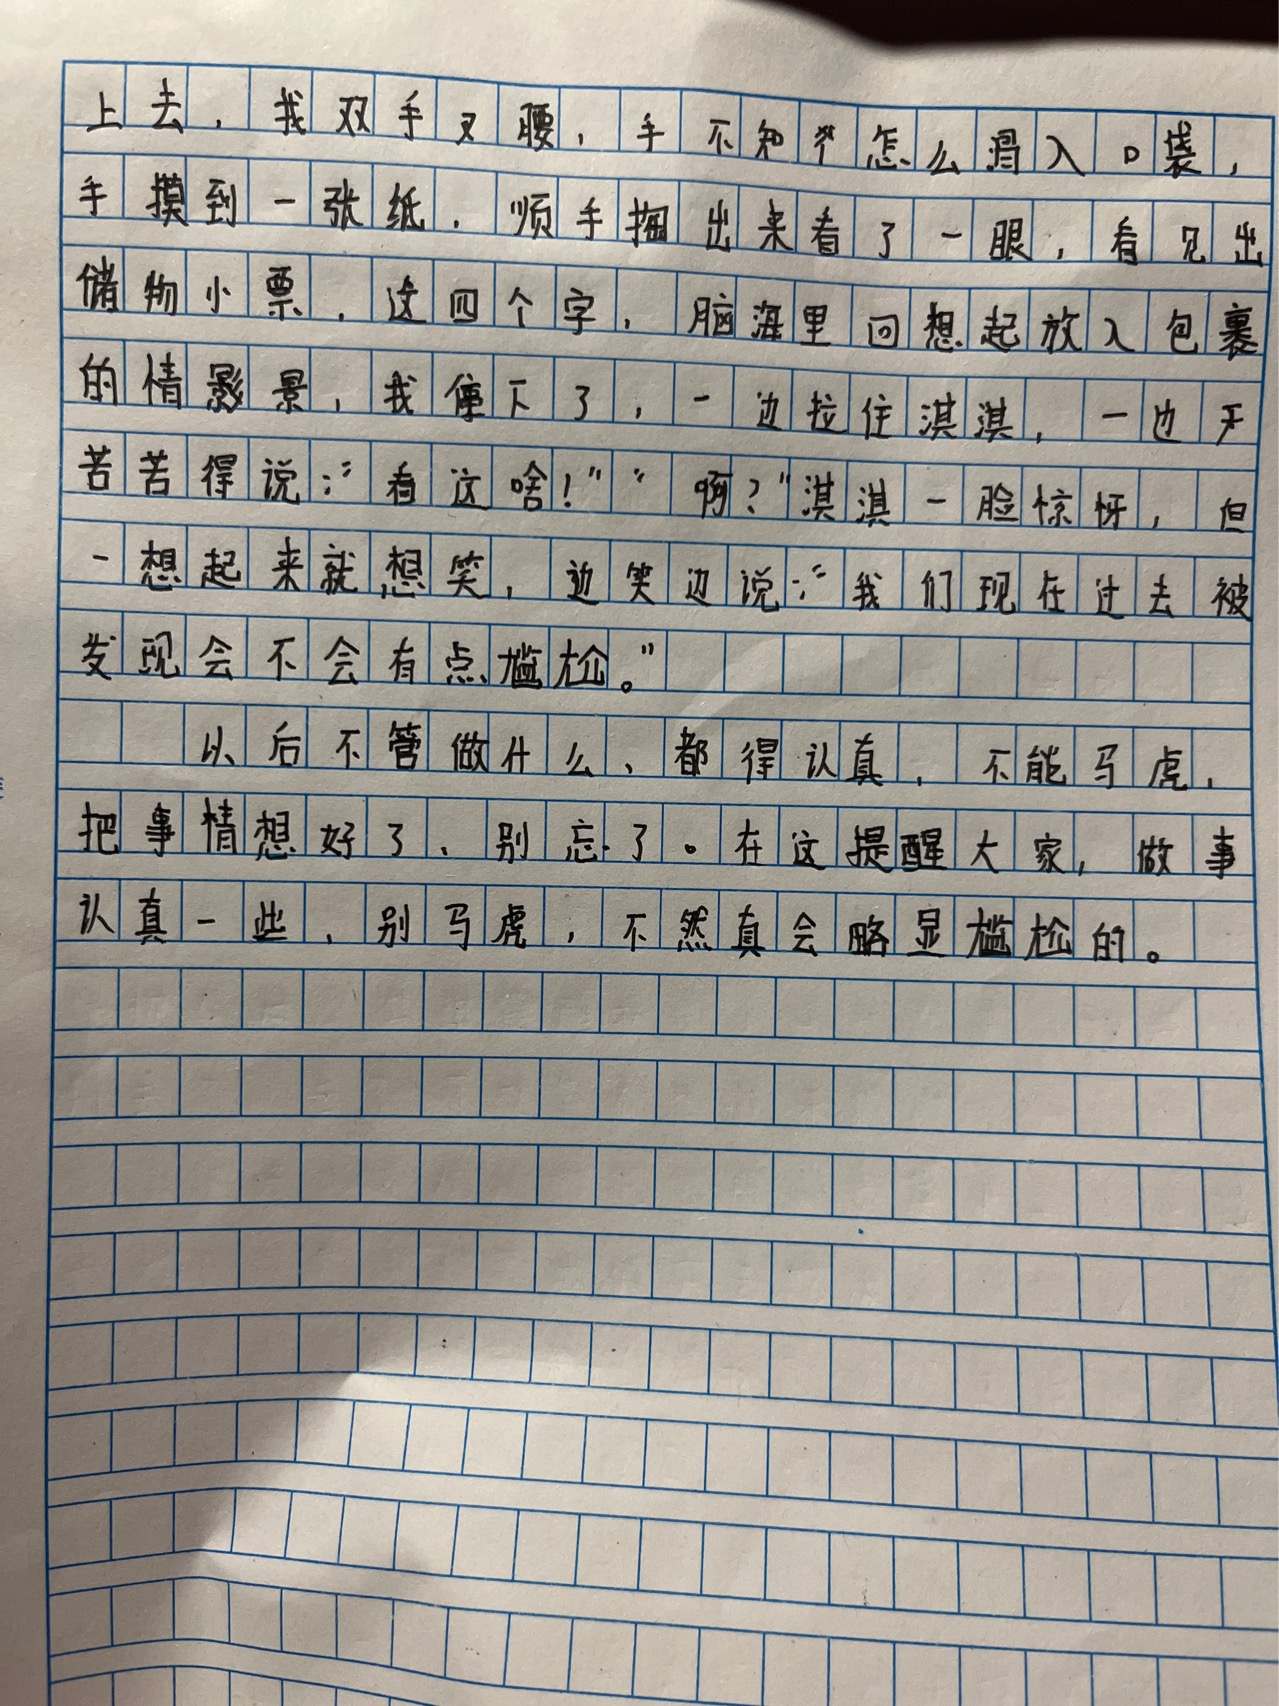 上去，我双手叉腰，手不知怎么滑入口袋，
手摸到一张纸，顺手掏出来看了一眼，看见出
储物小票，这四个字，脑海里回想起放入包裹
的情影景，我停下了，一边拉住淇淇，一边
苦苦得说：“看这啥！”“啊？”淇淇一脸惊讶，但
一想起来就想笑，边笑边说：“我们现在过去被
发现会不会有点尴尬。”
以后不管做什么、都得认真，不能马虎，
把事情想好了、别忘了。在这提醒大家，做事
认真一些，别马虎，不然真会略显尴尬的。